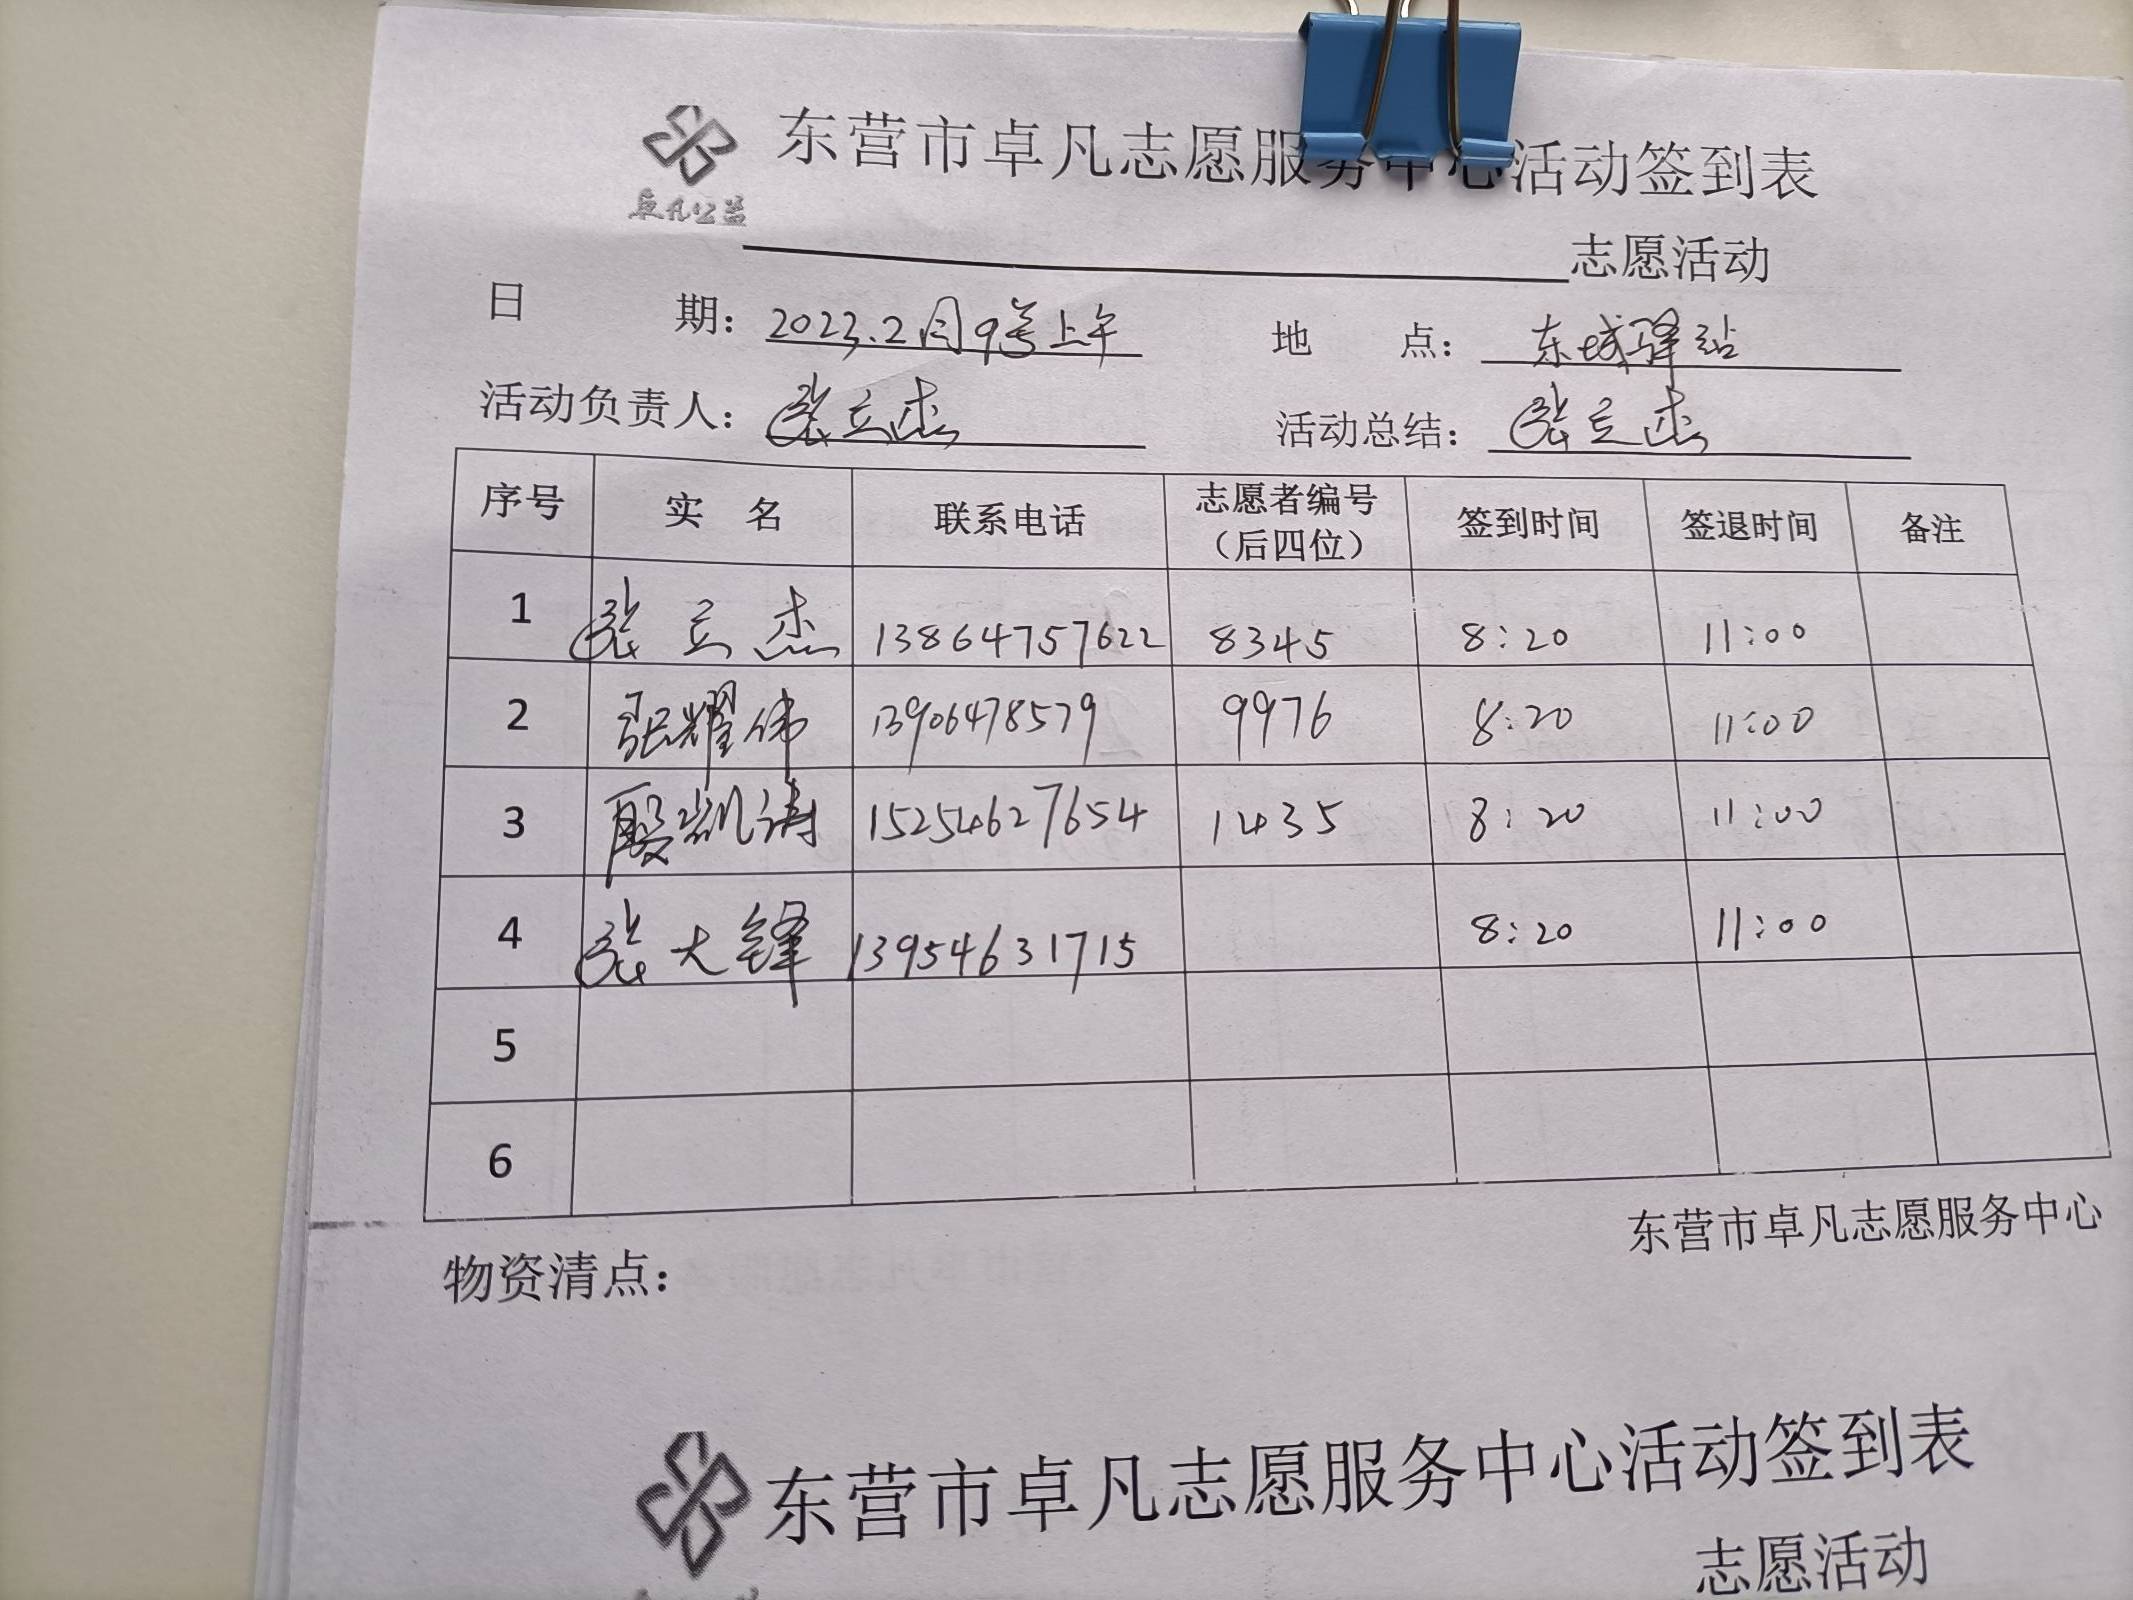 东营市卓凡志愿服务中心活动签到表
卓凡公益
志愿活动
日期：2023.2月9号上午 地点：东城驿站
活动负责人：张立杰 活动总结：张立杰
序号 实名 联系电话 志愿者编号（后四位） 签到时间 签退时间 备注
1 张立杰 13864757622 8345 8:20 11:00
2 张耀伟 13906478579 9976 8:20 11:00
3 殷凯涛 15254627654 1435 8:20 11:00
4 张大锋 13954631715 8:20 11:00
5
6
东营市卓凡志愿服务中心
物资清点：
东营市卓凡志愿服务中心活动签到表
志愿活动